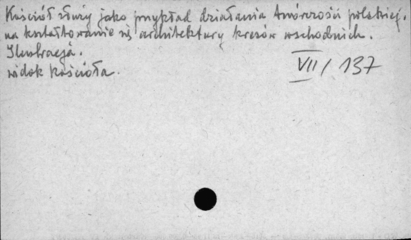 Kościół służy jako przykład działania twórczości polskiej.
na kształtowanie się architektury kresów wschodnich.
Ilustracja.
widok kościoła.
VII/137